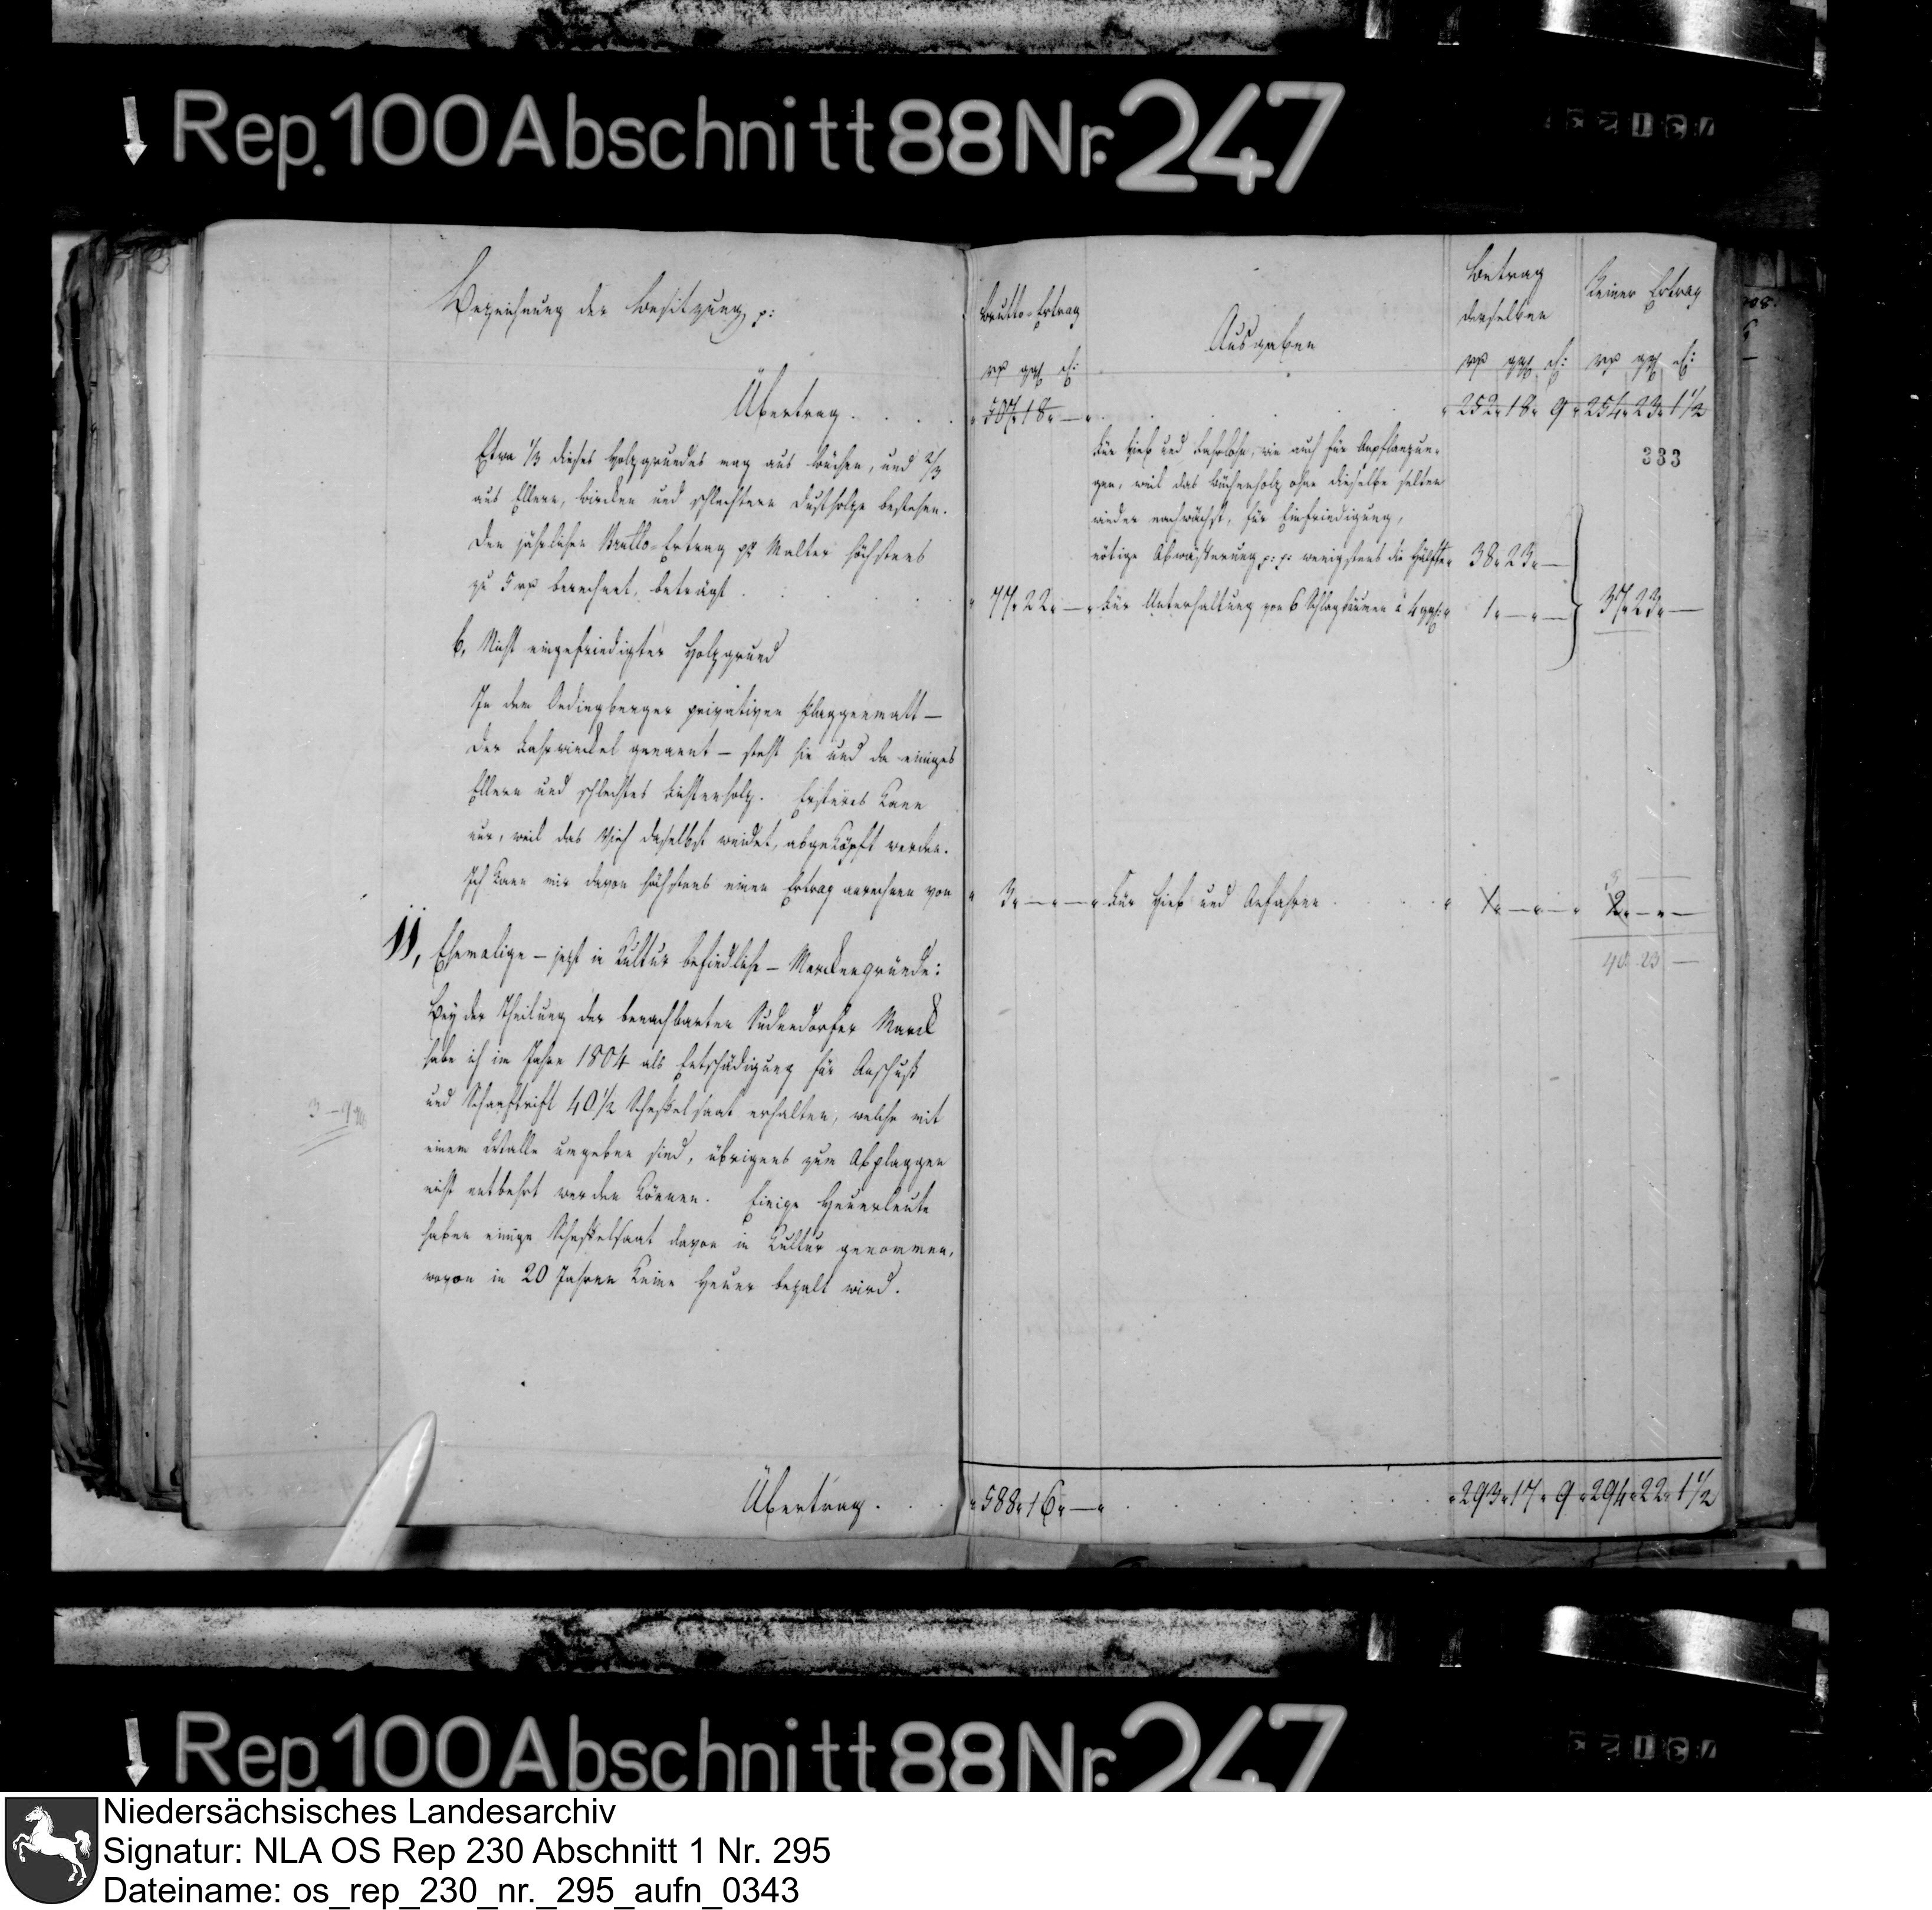 Rep. 100 Abschnitt 88 Nr. 247
Bezeichnung der Besitzung p:
Brutto-Ertrag
Ausgaben
Betrag
derselben
Reiner Ertrag
rp ggl ₰: rp ggl ₰: rp ggl ₰:
Übertrag . . . 507. 18. — . . . . 252. 18. 9. 254. 23. 1½
333
Etwa 1/3 dieses Holzgrundes mag aus Büchen, und 2/3
aus Ellern, Bircken und schlechtern Dustholze bestehen.
Den jährlichen Brutto-Ertrag pr Malter höchstens
zu 5 rp berechnet, beträgt . . . . 77. 22. —
Für Hieb und Fuhrlohn, wie auch für Anpflanzun-
gen, weil das Büchenholz ohne dieselbe selten
wieder nachwächst, für Einfriedigung,
nötige Abwässerung p: p: wenigstens die Hälfte 38. 23. —
Für Unterhaltung von 6 Schlagbäumen à 4 ggl: 1. — . —
37. 23. —
b, Nicht eingefriedigter Holzgrund
In dem Oedingberger privativen Plaggenmatt —
der Lahrwinckel genannt — steht hie und da einiges
Ellern und schlechtes Büchenholz. Ersteres kann
nur, weil das Vieh daselbst weidet, abgeköpft werden.
Ich kann mir davon höchstens einen Ertrag anrechnen von 3. — . — Für Hieb und Anfahren . . . . 1. — . — 2. — . —
3
40 23 —
11, Ehemalige — jetzt in Cultur befindliche — Marckengründe:
Bey der Theilung der benachbarten Sudendorfer Marck
habe ich im Jahre 1804 als Entschädigung für Anschuß
und Schaaftrift 40½ Scheffelsaat erhalten, welche mit
einem Walle umgeben sind, übrigens zum Abplaggen
nicht entbehrt werden können. Einige Heuerleute
haben einige Scheffelsaat davon in Cultur genommen,
wovon in 20 Jahren keine Heuer bezalt wird.
Übertrag . . . 588. 16. — . . . . 293. 17. 9. 294. 22. 1½
Rep. 100 Abschnitt 88 Nr. 247
Niedersächsisches Landesarchiv
Signatur: NLA OS Rep 230 Abschnitt 1 Nr. 295
Dateiname: os_rep_230_nr._295_aufn_0343